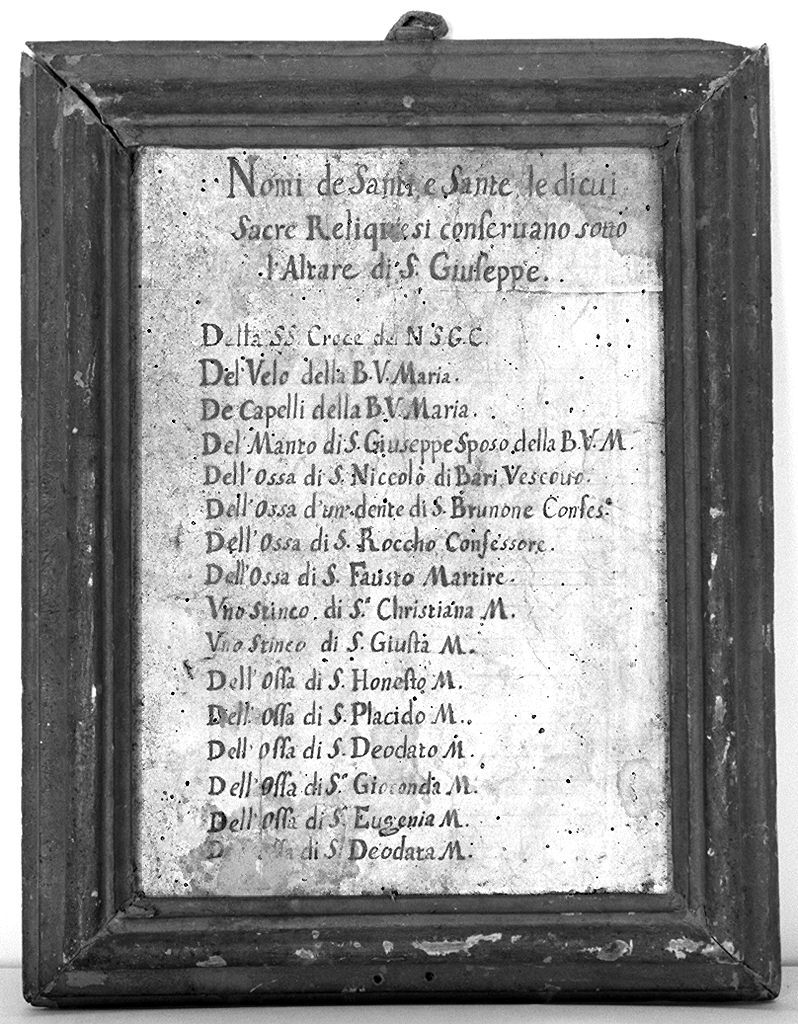 Nomi de Santi, e Sante, le di cui
Sacre Reliquie si conseruano sotto
l'Altare di S. Giuseppe.
Della SS. Croce del N.S.G.C.
Del Velo della B.V. Maria.
De Capelli della B.V. Maria.
Del Manto di S. Giuseppe Sposo della B.V.M.
Dell'Ossa di S. Niccolò di Bari Vescouo.
Dell'Ossa d'un dente di S. Brunone Confes.e
Dell'Ossa di S. Roccho Confessore.
Dell'Ossa di S. Fausto Martire.
Vno Stinco di S.a Christiana M.
Vno Stinco di S. Giusta M.
Dell'Ossa di S. Honesto M.
Dell'Ossa di S. Placido M.
Dell'Ossa di S. Deodato M.
Dell'Ossa di S.a Gioconda M.
Dell'Ossa di S.a Eugenia M.
Dell'Ossa di S.a Deodata M.